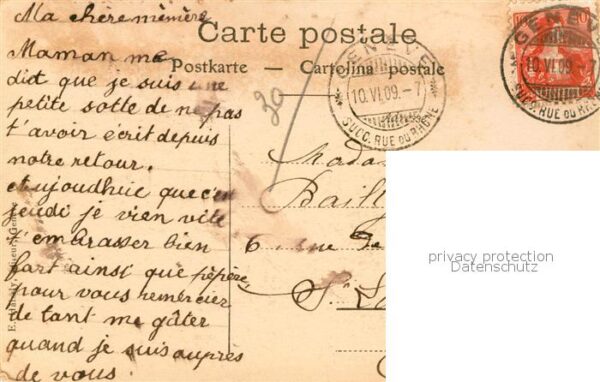 Ma chère mémère
Maman me
dit que je suis une
petite sotte de ne pas
t'avoir écrit depuis
notre retour.
aujoudhuie que c'est
jeudi je vien vite
t'embrasser bien
fort ainsi que pépère,
pour vous remercier
de tant me gâter
quand je suis auprès
de vous.
Carte postale
Postkarte — Cartolina postale
30
GENÈVE
10.VI.09.-7
SUCC. RUE DU RHÔNE
GENÈV
10.VI.09.-7
SUCC. RUE DU RHÔNE
10
Mada
Baill
6 rue
St
privacy protection
Datenschutz